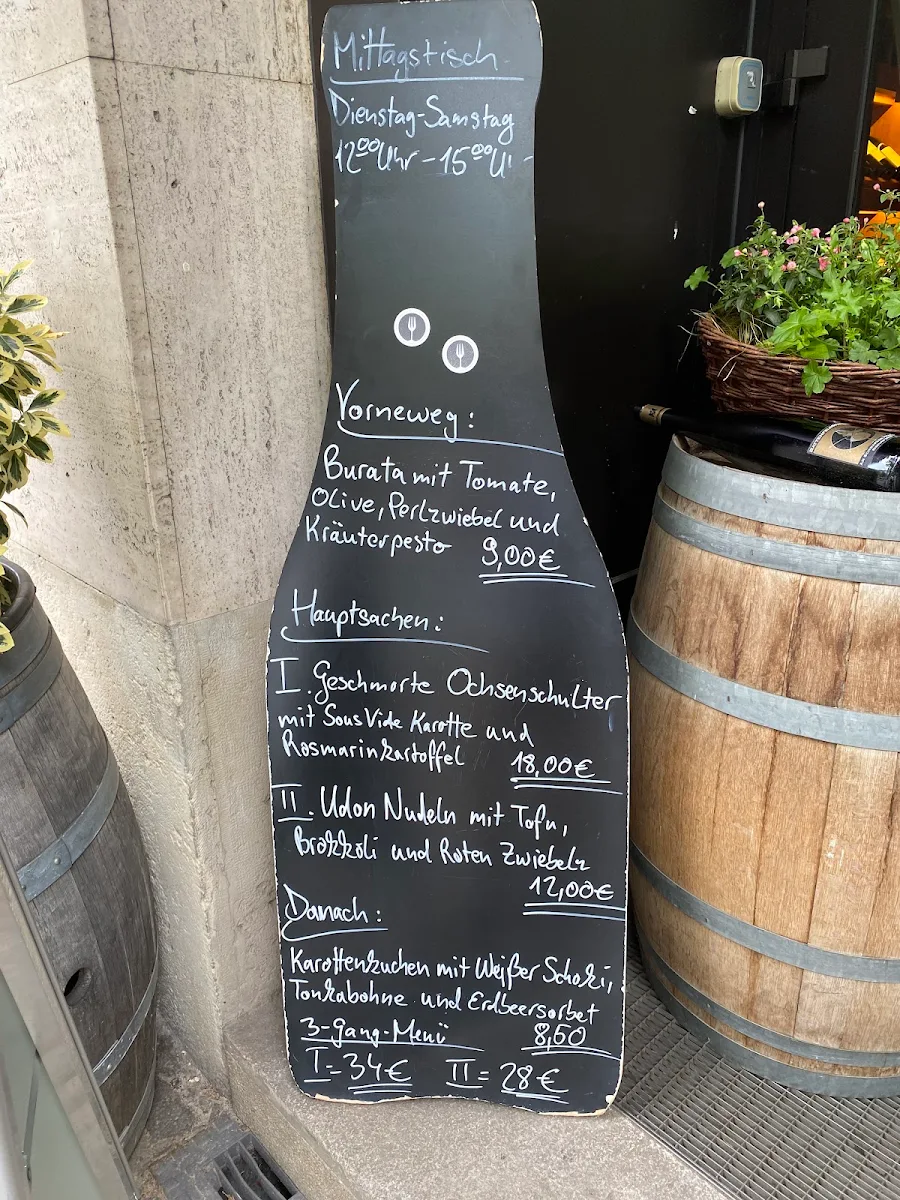 Mittagstisch
Dienstag-Samstag
12⁰⁰Uhr - 15⁰⁰U
Vorneweg:
Burata mit Tomate,
Olive, Perlzwiebel und
Kräuterpesto 9,00€
Hauptsachen:
I. Geschmorte Ochsenschulter
mit Sous Vide Karotte und
Rosmarinkartoffel 18,00€
II. Udon Nudeln mit Tofu,
Brokkoli und Roten Zwiebeln
12,00€
Danach:
Karottenkuchen mit Weißer Schoki,
Tonkabohne und Erdbeersorbet
3-Gang-Menü 8,60
I = 34€ II = 28€